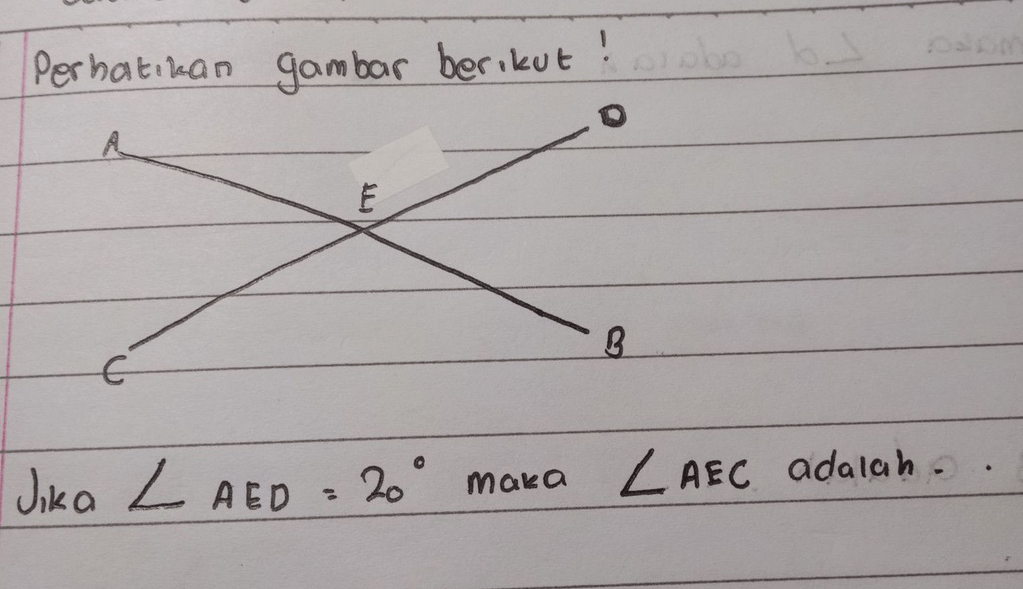 Perhatikan gambar berikut !
A
D
E
C
B
Jika ∠ AED = 20° maka ∠ AEC adalah . .